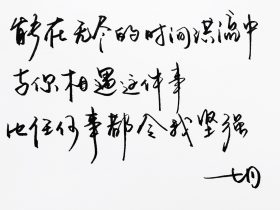 能在无尽的时间洪流中
与你相遇这件事
比任何事都令我坚强
一七月